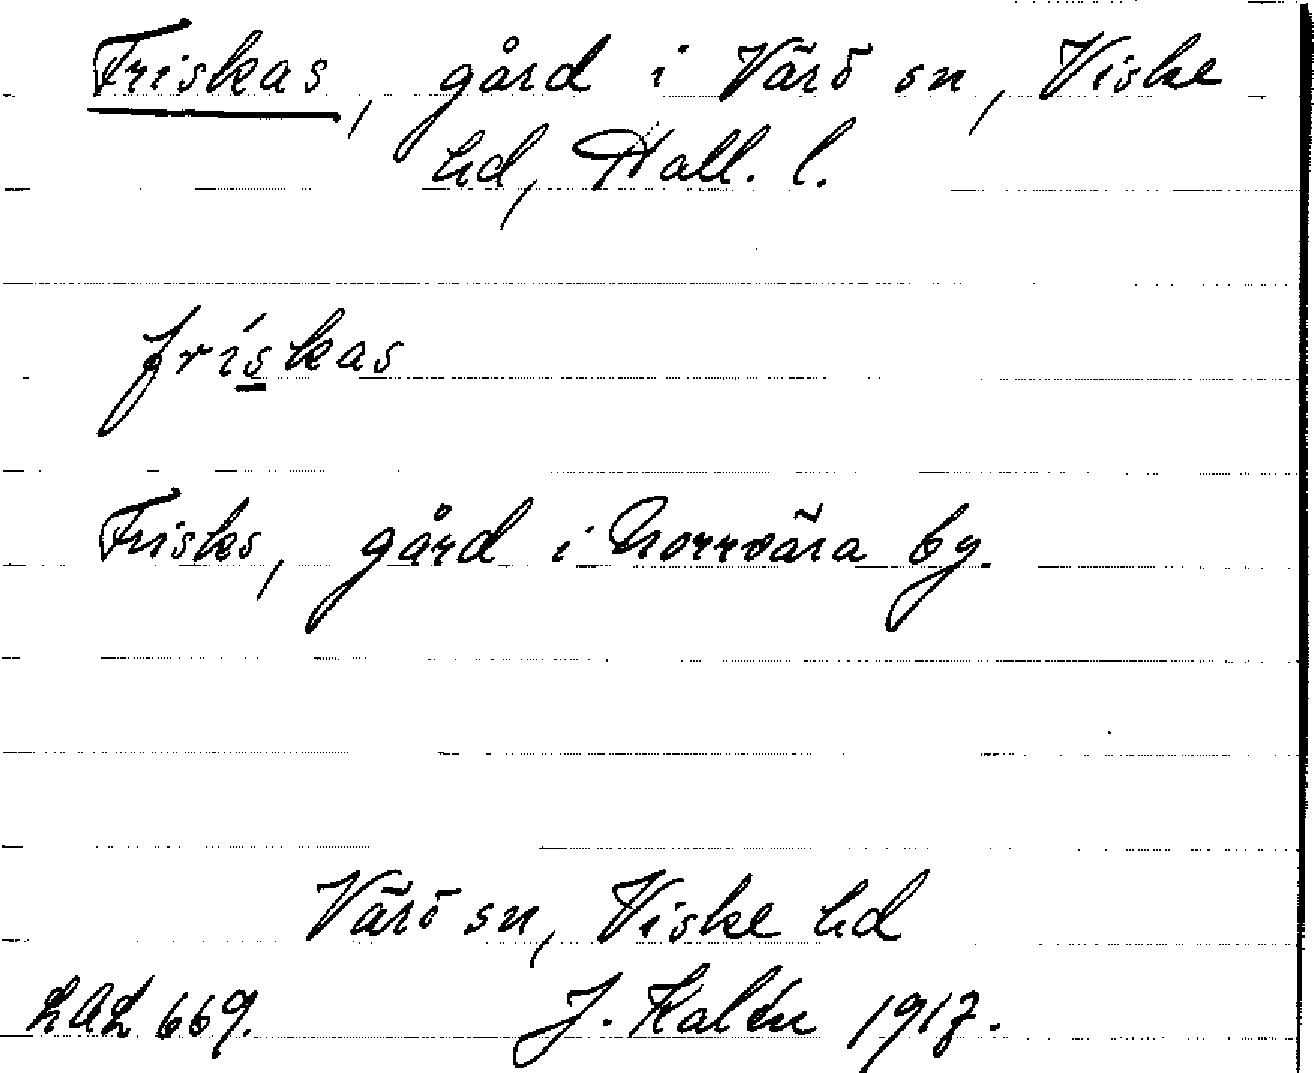 Friskas, gård i Värö sn, Viske
hd, Hall. l.
frískas
Frisks, gård i Norrvära by.
Värö sn, Viske hd
LAL 669. J. Kalén 1917.